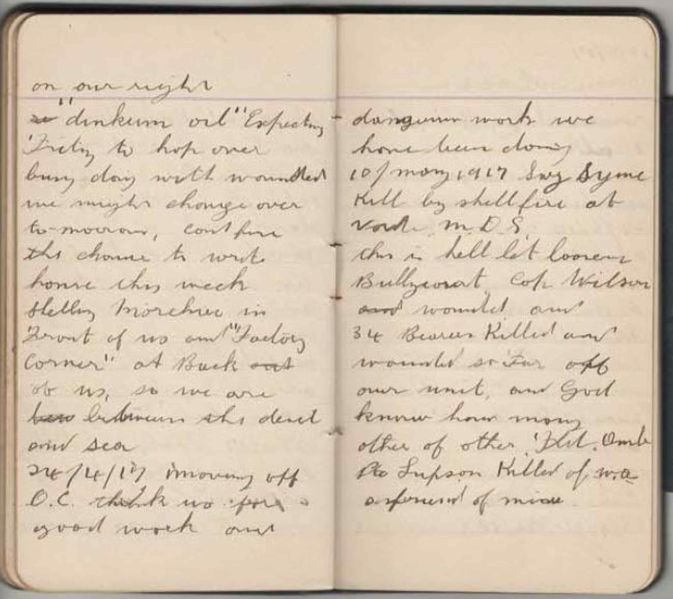 on our right
"dinkum oil" Expecting
Fritz to hop over
busy day with wounded
we might change over
to-morrow, cant find
the chance to write
home this week
shelling in
Front of us and "Factory
Corner" at Back out
of us, so we are
between the devil
and sea
24/4/17 moving off
O.C. thank us for
good work and
dangerous work we
have been doing
10/may 1917 Syme
Kill by shellfire at
M.D.S,
this is hell let loose
Bullycourt, Wilson
and wounded and
34 Bearers Killed and
wounded so Far off
our unit, and God
know how many
other of other Fld. Amb
Pte Jupson Killed of W.A
a friend of mine.